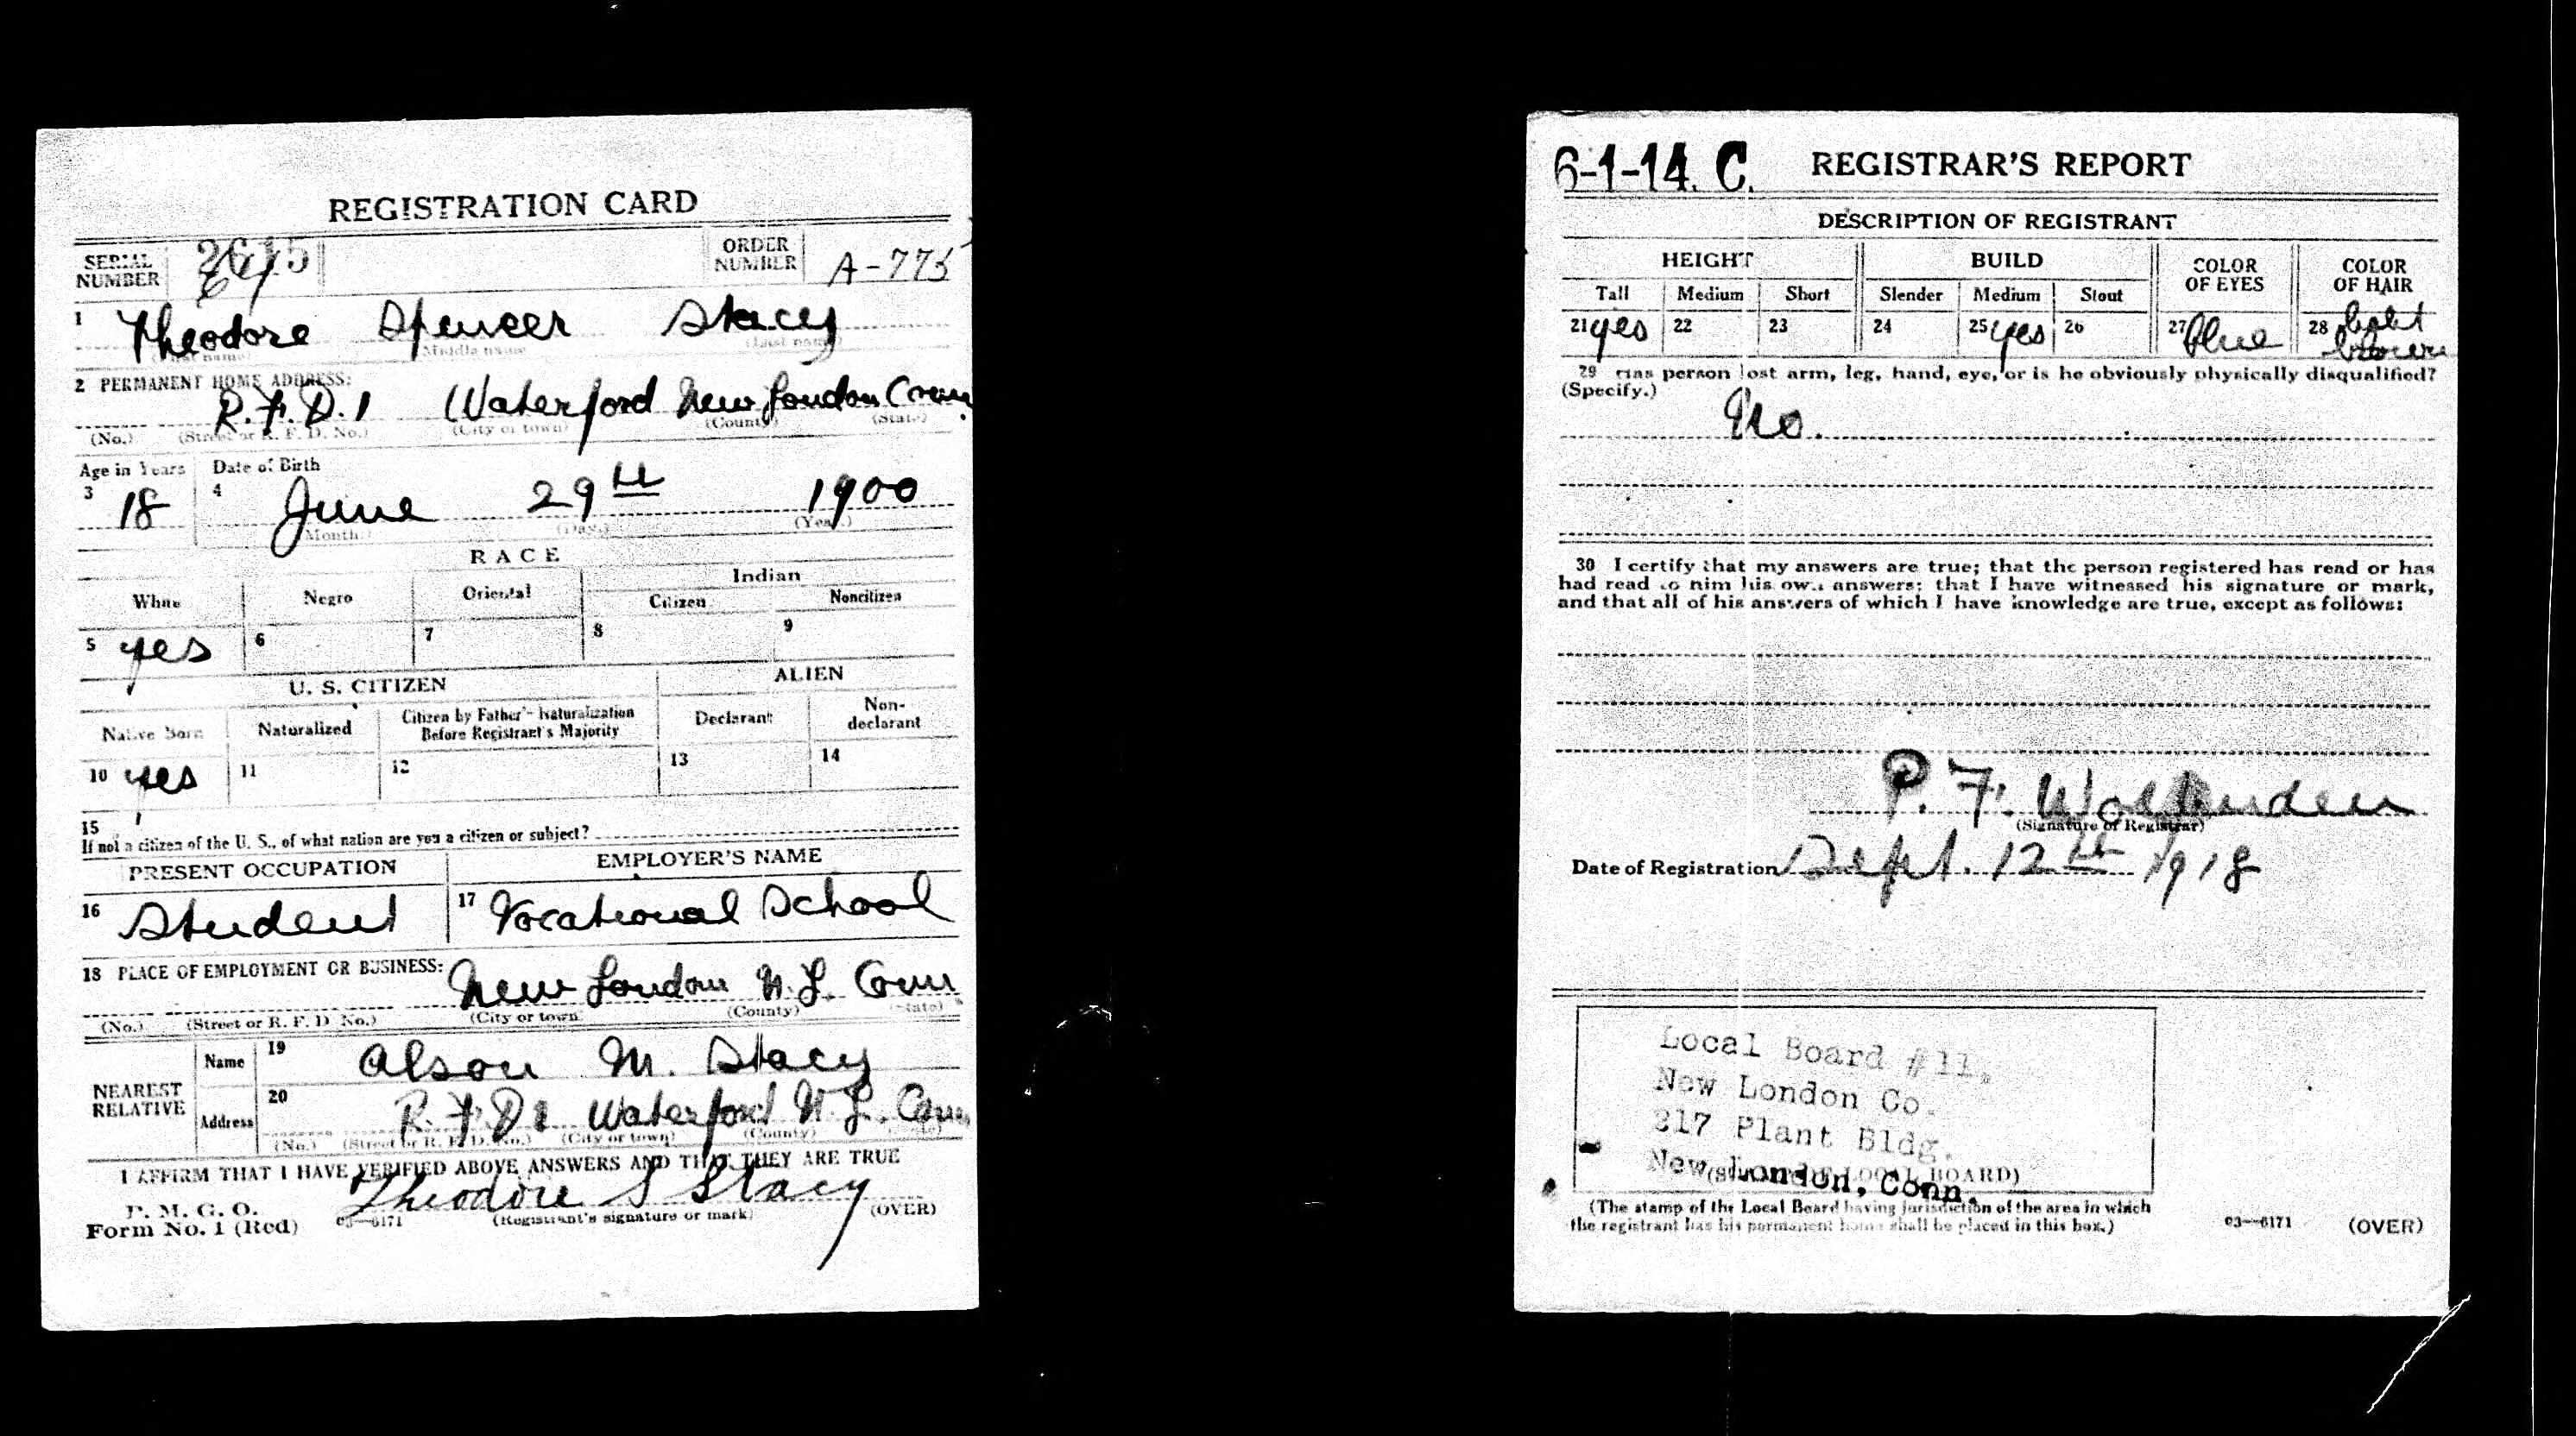 REGISTRATION CARD
SERIAL NUMBER 2615
ORDER NUMBER A-775
1 Theodore Spencer Stacy
(First name) (Middle name) (Last name)
2 PERMANENT HOME ADDRESS:
R.F.D.1 Waterford New London Conn.
(No.) (Street or R. F. D. No.) (City or town) (County) (State)
Age in Years Date of Birth
3 18 4 June 29th 1900
(Month.) (Day.) (Year.)
RACE
White Negro Oriental Indian
Citizen Noncitizen
5 yes 6 7 8 9
U. S. CITIZEN ALIEN
Native Born Naturalized Citizen by Father's Naturalization Before Registrant's Majority Declarant Non-declarant
10 yes 11 12 13 14
15
If not a citizen of the U. S., of what nation are you a citizen or subject?
PRESENT OCCUPATION EMPLOYER'S NAME
16 Student 17 Vocational School
18 PLACE OF EMPLOYMENT OR BUSINESS:
New London N.L. Conn
(No.) (Street or R. F. D. No.) (City or town) (County) (State)
NEAREST RELATIVE
Name 19 Alson M. Stacy
Address 20 R.F.D1 Waterford N.L. Conn
(No.) (Street or R. F. D. No.) (City or town) (County) (State)
I AFFIRM THAT I HAVE VERIFIED ABOVE ANSWERS AND THAT THEY ARE TRUE
P. M. G. O.
Form No. 1 (Red) 03—6171 Theodore S Stacy
(Registrant's signature or mark) (OVER)
6-1-14. C. REGISTRAR'S REPORT
DESCRIPTION OF REGISTRANT
HEIGHT BUILD COLOR OF EYES COLOR OF HAIR
Tall Medium Short Slender Medium Stout
21 yes 22 23 24 25 yes 26 27 Blue 28 light brown
29 Has person lost arm, leg, hand, eye, or is he obviously physically disqualified?
(Specify.)
No.
30 I certify that my answers are true; that the person registered has read or has
had read to him his own answers; that I have witnessed his signature or mark,
and that all of his answers of which I have knowledge are true, except as follows:
P. F.
(Signature of Registrar)
Date of Registration Sept. 12th 1918
Local Board #11,
New London Co.
217 Plant Bldg.
New London, Conn.
(STAMP OF LOCAL BOARD)
(The stamp of the Local Board having jurisdiction of the area in which
the registrant has his permanent home shall be placed in this box.)
03—6171 (OVER)